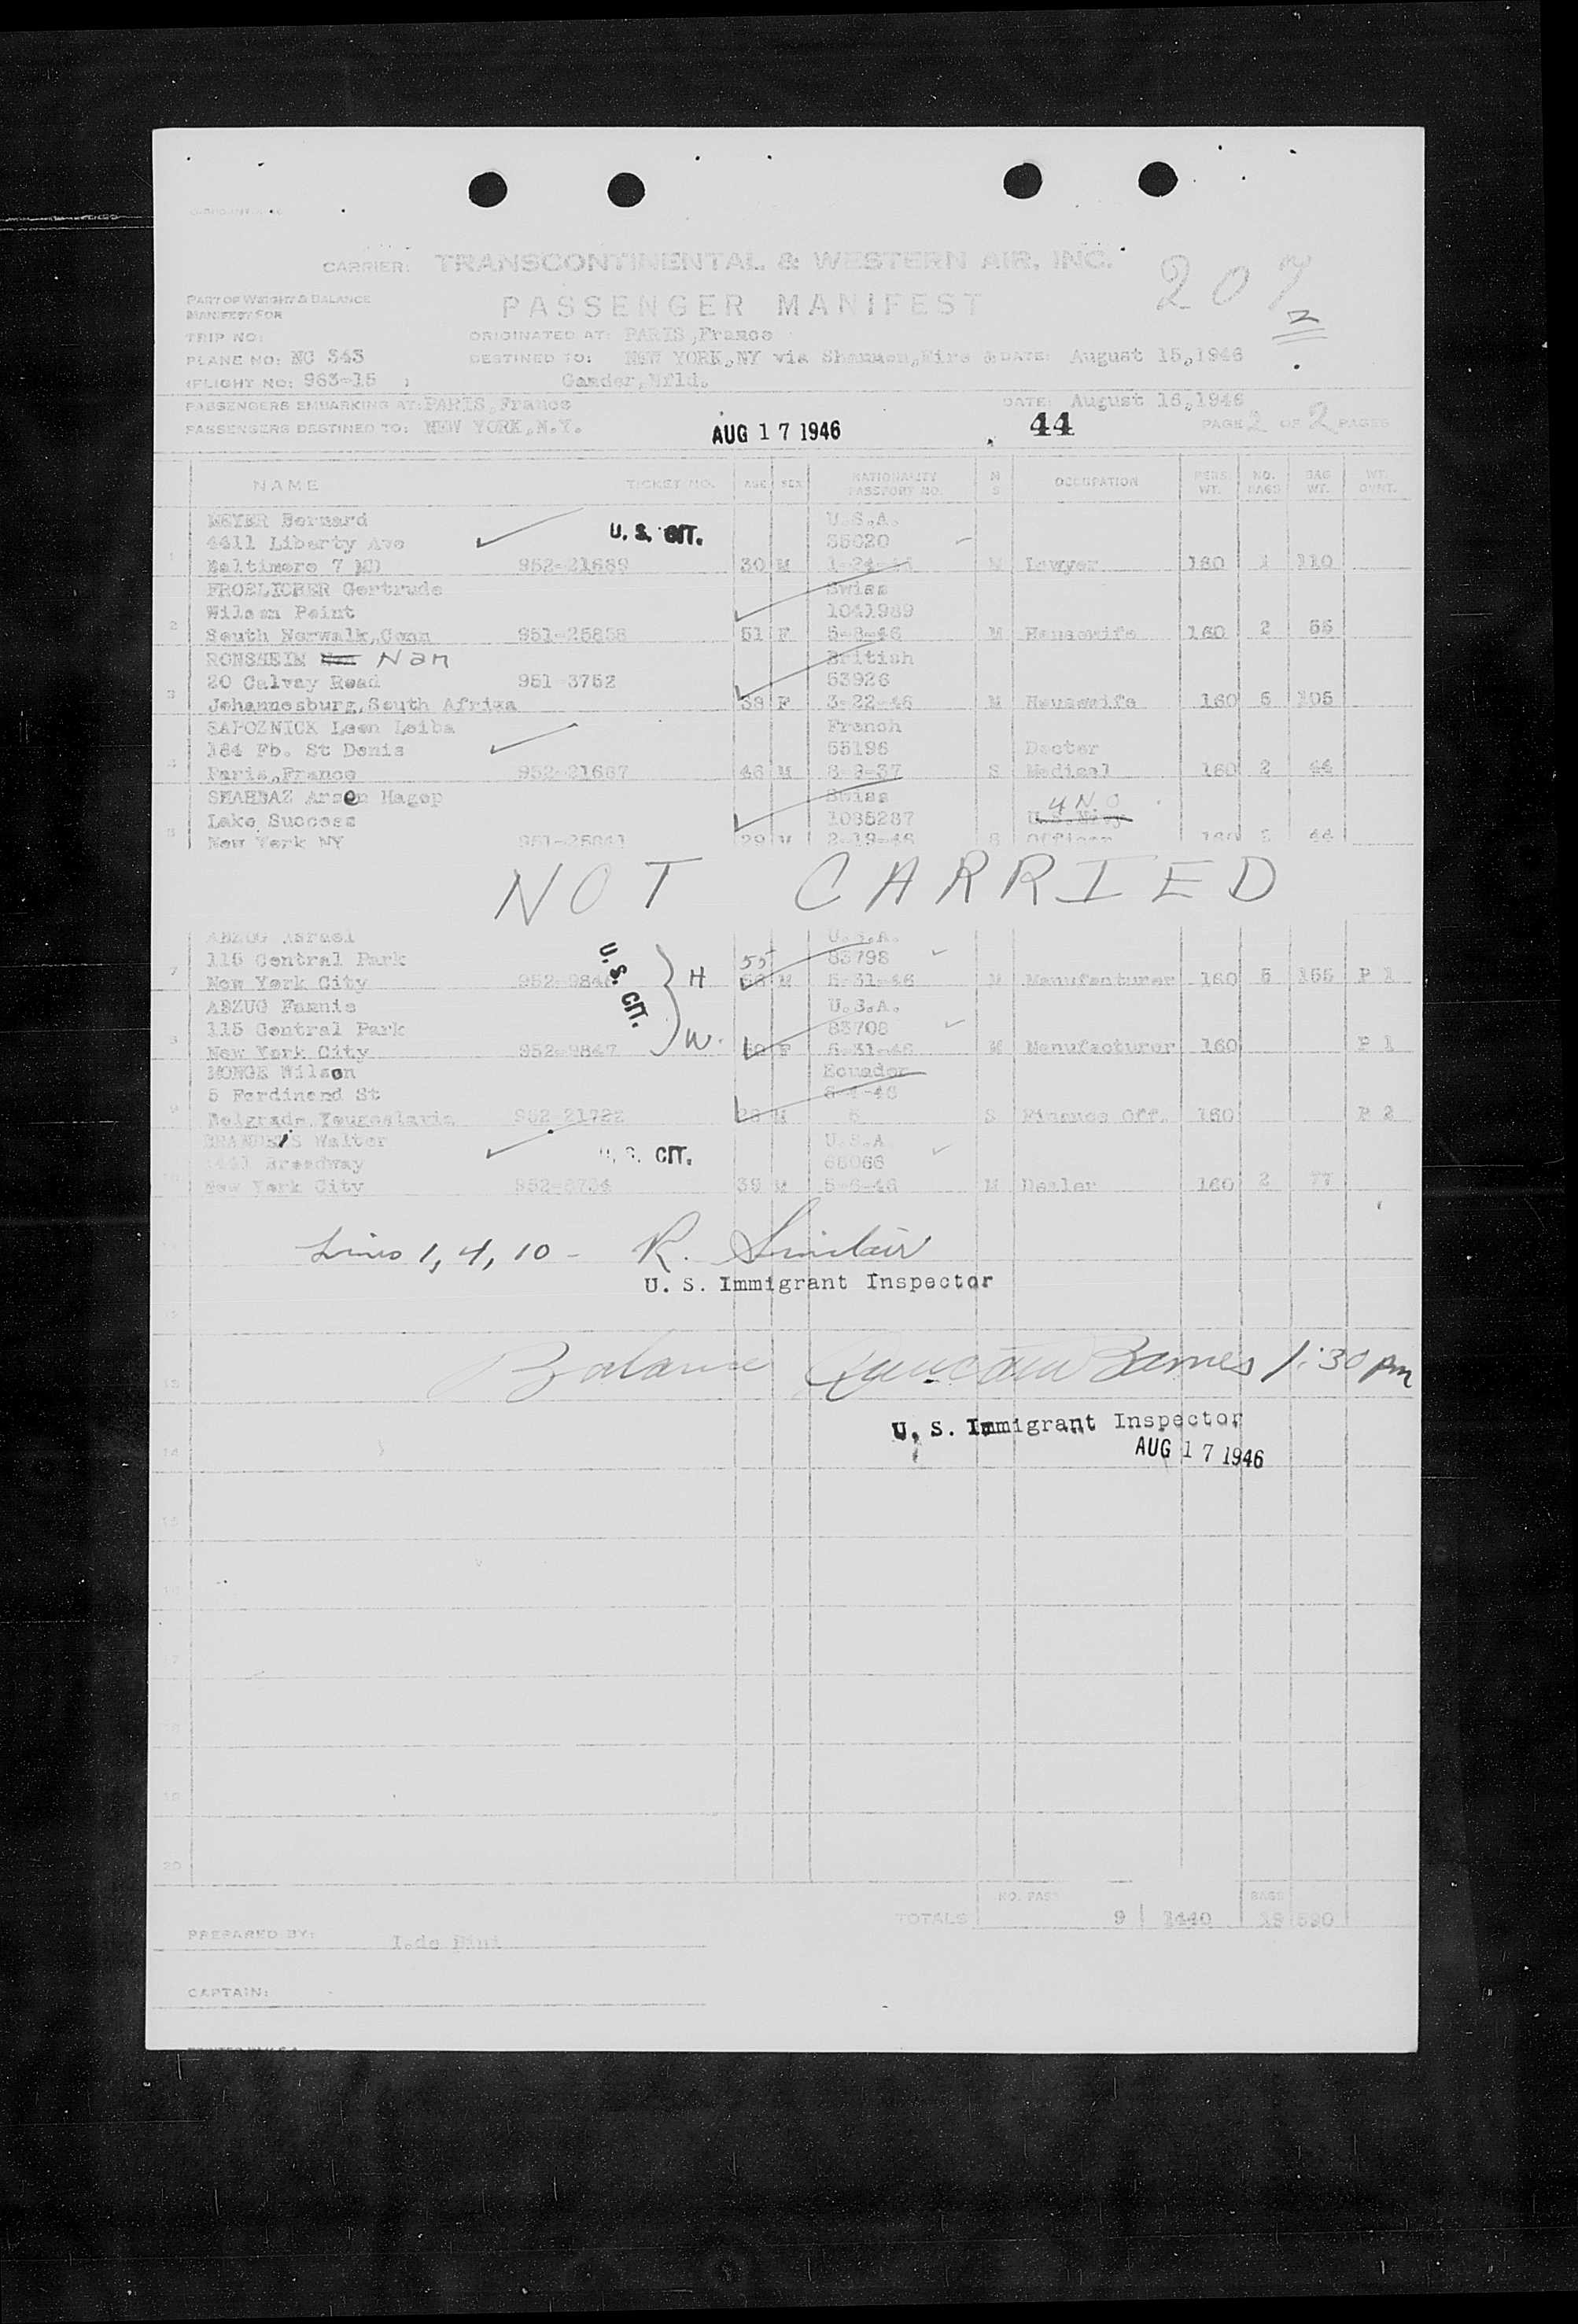 CARRIER: TRANSCONTINENTAL & WESTERN AIR, INC.
207
2
PART OF WEIGHT & BALANCE
MANIFEST FOR
PASSENGER MANIFEST
TRIP NO:
ORIGINATED AT: PARIS,France
PLANE NO: NC 343
DESTINED TO: NEW YORK,NY via Shannon,Eire & DATE: August 15,1946
(FLIGHT NO: 963-15 )
Gander,Nfld.
PASSENGERS EMBARKING AT: PARIS,France
DATE: August 16,1946
PASSENGERS DESTINED TO: NEW YORK,N.Y.
AUG 17 1946
44
PAGE 2 OF 2 PAGES
NAME TICKET NO. AGE SEX NATIONALITY PASSPORT NO. M S OCCUPATION PERS. WT. NO. BAGS BAG WT. WT. DVRT.
MEYER Bernard U.S.A.
4411 Liberty Ave U.S. CIT. 35020
1 Baltimore 7 MD 952-21689 30 M M Lawyer 160 1 110
FROELICHER Gertrude Swiss
Wilson Point 1041989
2 South Norwalk,Conn 951-25858 51 F 5-8-46 M Housewife 160 2 55
RONSHEIM Nan British
20 Calvay Road 951-3752 53926
3 Johannesburg,South Africa 38 F 3-22-46 M Housewife 160 5 105
SAPOZNICK Leon Leiba French
184 Fb. St Denis 55196 Doctor
4 Paris,France 952-21687 46 M 8-9-37 S Medical 160 2 44
SHAHBAZ Arsen Hagop Swiss UNO
Lake Success 1035287 U.S.Navy
5 New York NY 951-25841 29 M 2-19-46 S Officer 160 44
NOT CARRIED
ABZUG Israel U.S.A.
115 Central Park U.S. CIT. 55 83798
7 New York City H M 5-31-46 M Manufacturer 160 5 165 P 1
ABZUG Fannie U.S.A.
115 Central Park 83708
8 New York City 952-9847 W. F 5-31-46 M Manufacturer 160 P 1
MONGE Wilson Ecuador
5 Ferdinand St 6-4-46
9 Belgrade,Yougoslavia 952-21722 M 5 S Finance Off. 160 P 2
Walter U.S.A
Broadway U.S. CIT. 66066
New York City 952-8734 39 M 5-6-46 M Dealer 160 2 77
Lines 1, 4, 10 - R. Sinclair
U. S. Immigrant Inspector
Balance Duncan Barnes 1:30 pm
13
U. S. Immigrant Inspector
14
AUG 17 1946
15
20
NO. PASS BAGS
TOTALS 9 1440 18 590
PREPARED BY: I.de Pini
CAPTAIN: